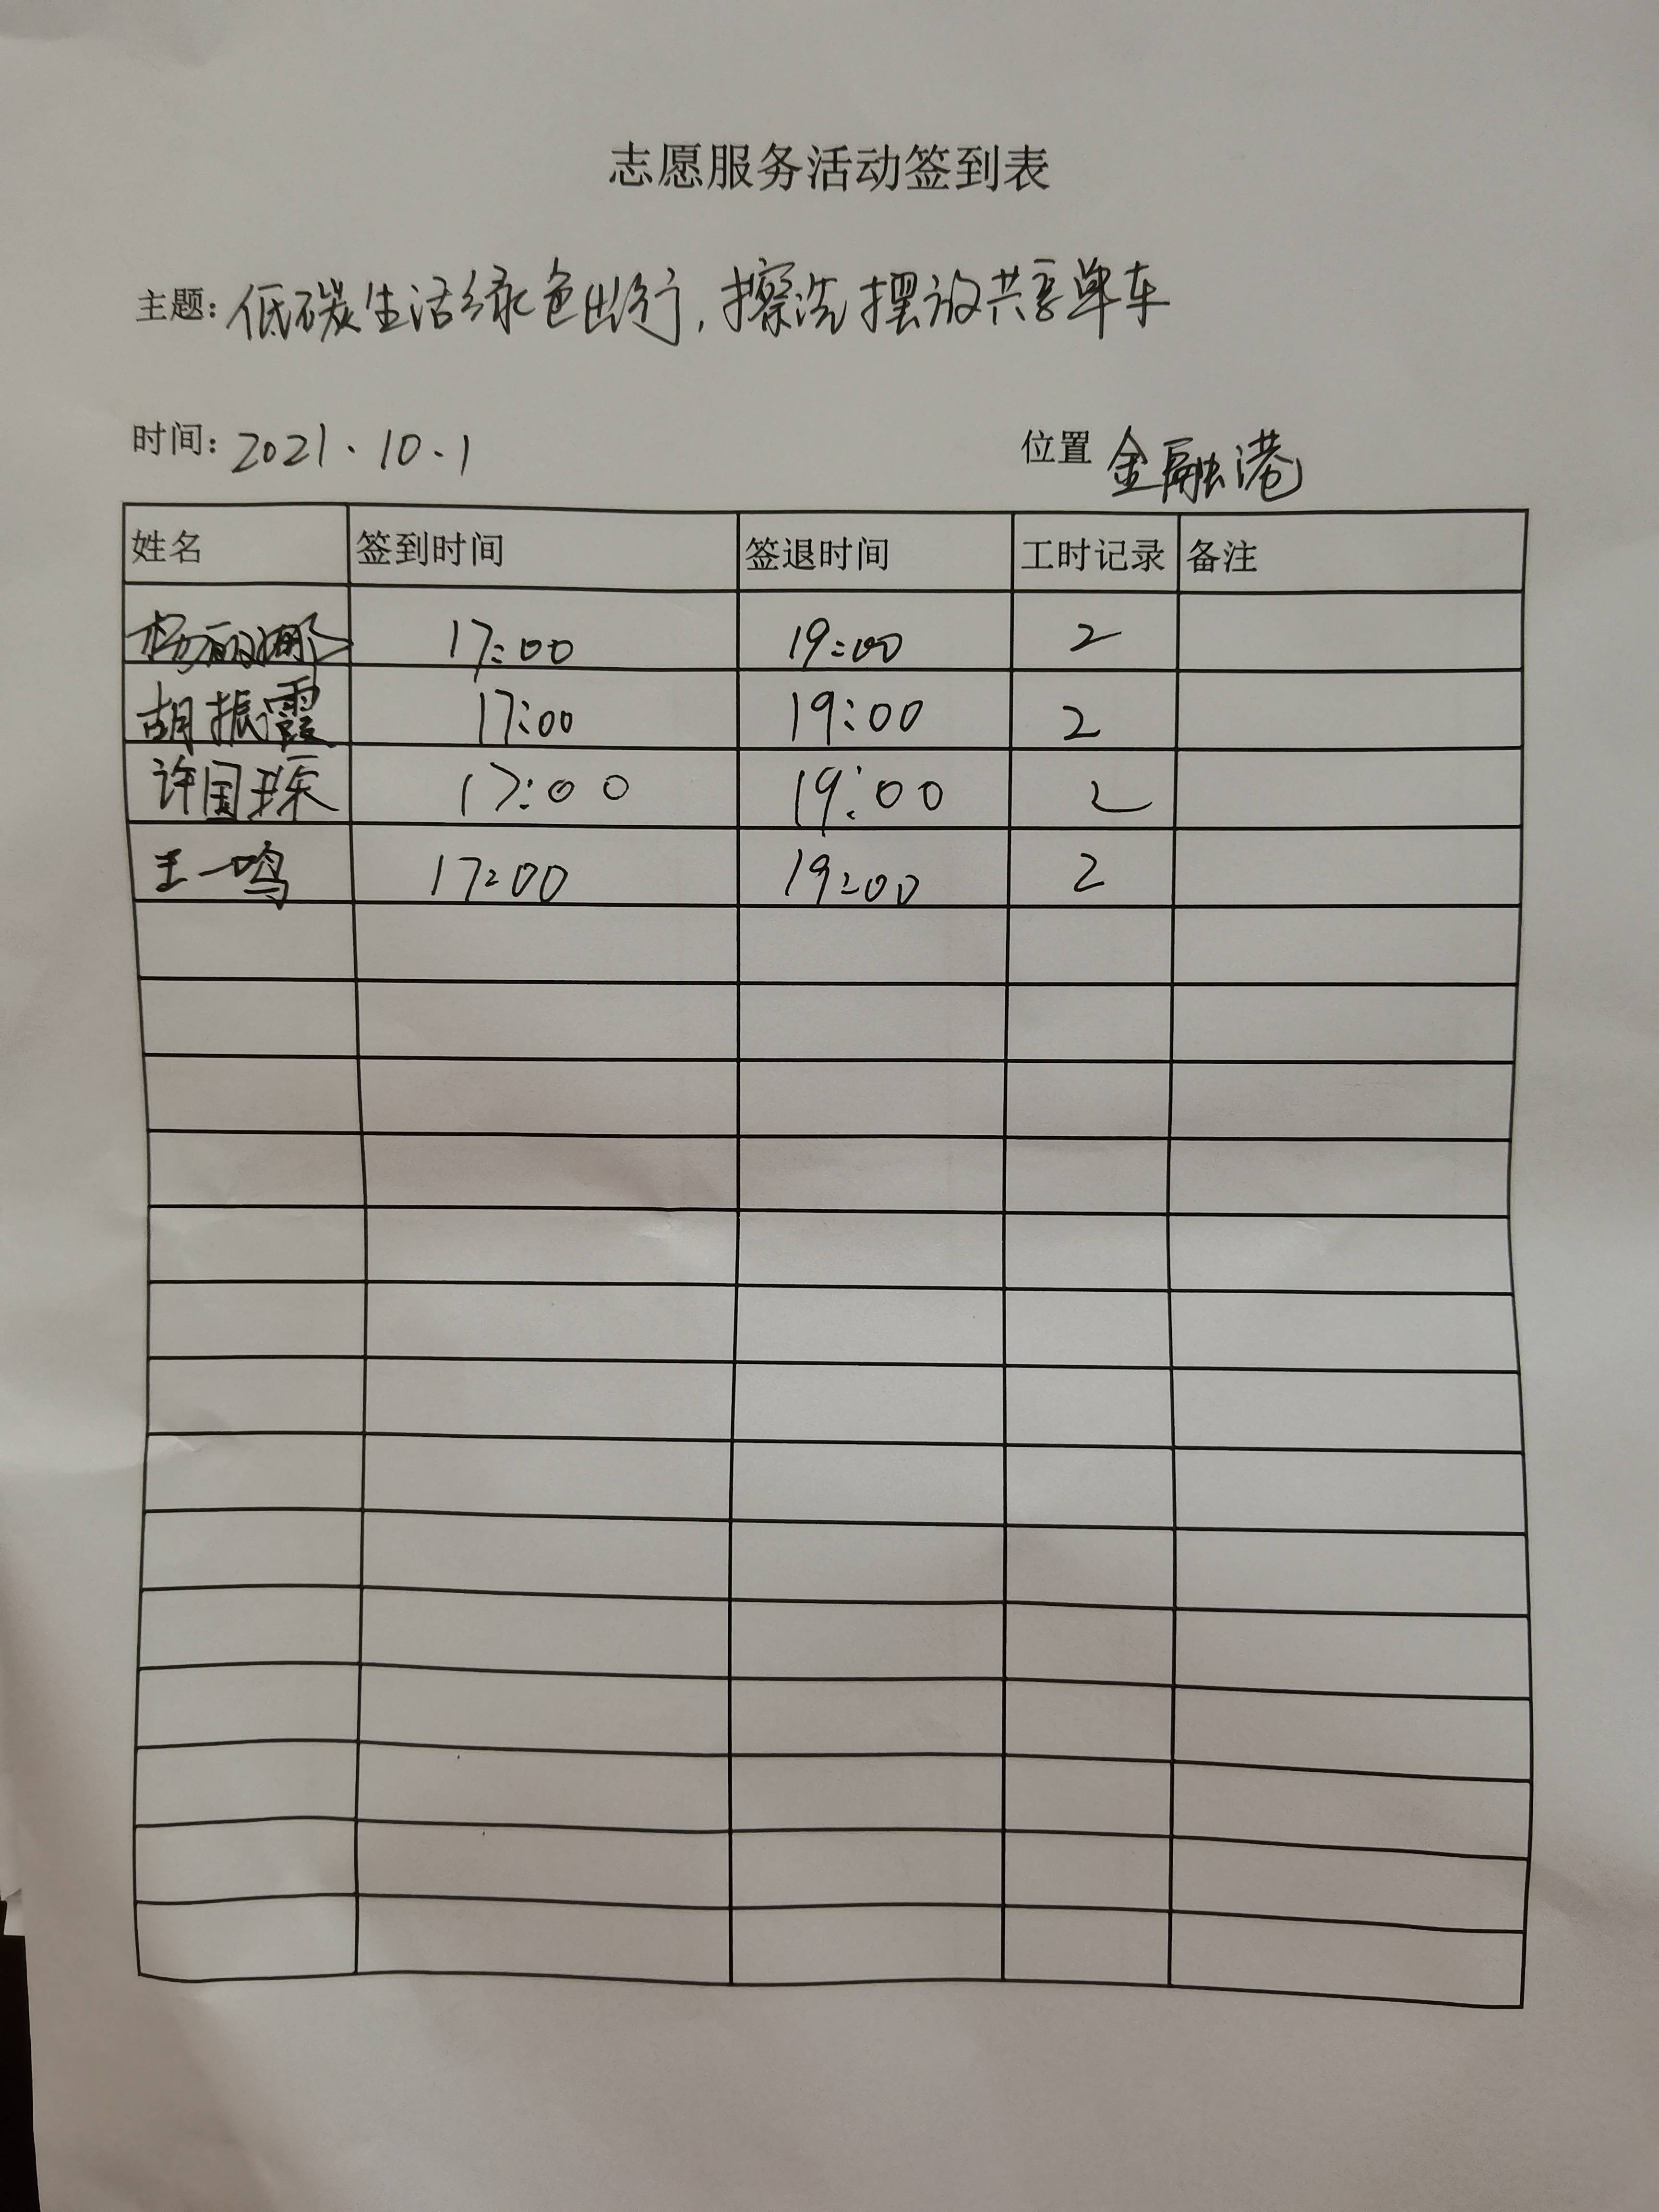 志愿服务活动签到表
主题：低碳生活绿色出行，擦洗摆放共享单车
时间：2021.10.1 位置 金融港
姓名 签到时间 签退时间 工时记录 备注
杨丽娜 17:00 19:00 2
胡振霞 17:00 19:00 2
许国琛 17:00 19:00 2
王一鸣 17:00 19:00 2